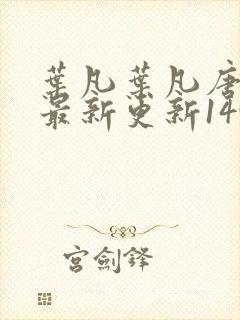 葉凡葉凡唐
最新更新14
宮劍鋒